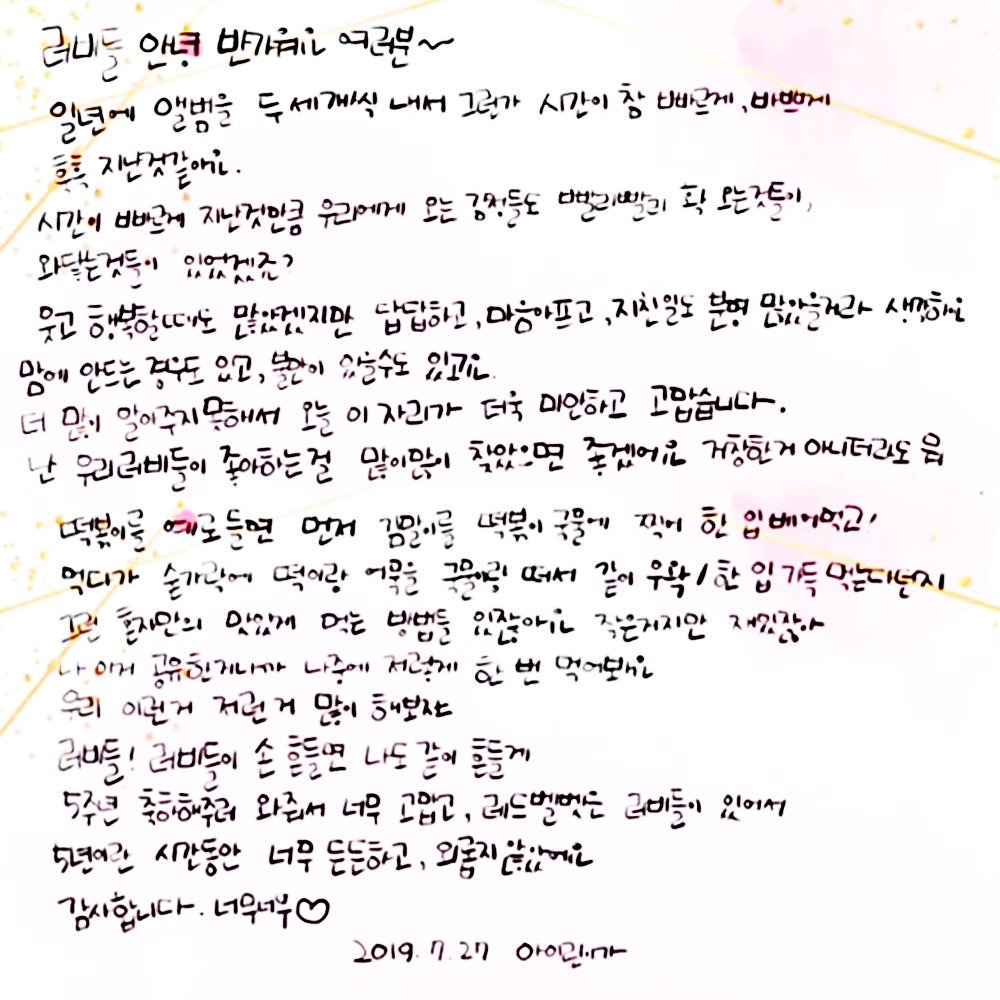 러비들 안녕 반가워요 여러분~
일년에 앨범을 두세개씩 내서 그런가 시간이 참 빠르게, 바쁘게
훅훅 지난것같아요.
시간이 빠르게 지난것만큼 우리에게 오는 감정들도 빨리빨리 확 오는것들이,
와닿는것들이 있었겠죠?
웃고 행복할때도 많았겠지만 답답하고, 마음아프고, 지친일도 분명 많았을거라 생각해요
맘에 안드는 경우도 있고, 불만이 있을수도 있고요.
더 많이 알아주지못해서 오늘 이 자리가 더욱 미안하고 고맙습니다.
난 우리러비들이 좋아하는걸 많이많이 찾았으면 좋겠어요 거창한거 아니더라도 음
떡볶이를 예로들면 먼저 김말이를 떡볶이국물에 찍어 한 입 베어먹고!
먹다가 숟가락에 떡이랑 어묵을 국물이랑 떠서 같이 우왁! 한 입 가득 먹는다던지
그런 혼자만의 맛있게 먹는 방법들 있잖아요 작은거지만 재밌잖아
나 이거 공유한거니까 나중에 저렇게 한 번 먹어보세요
우리 이런거 저런거 많이 해보자
러비들! 러비들이 손 흔들면 나도 같이 흔들게
5주년 축하해주러 와줘서 너무 고맙고, 레드벨벳은 러비들이 있어서
5년이란 시간동안 너무 든든하고, 외롭지않았어요
감사합니다. 너무너무♡
2019. 7. 27 아이린가